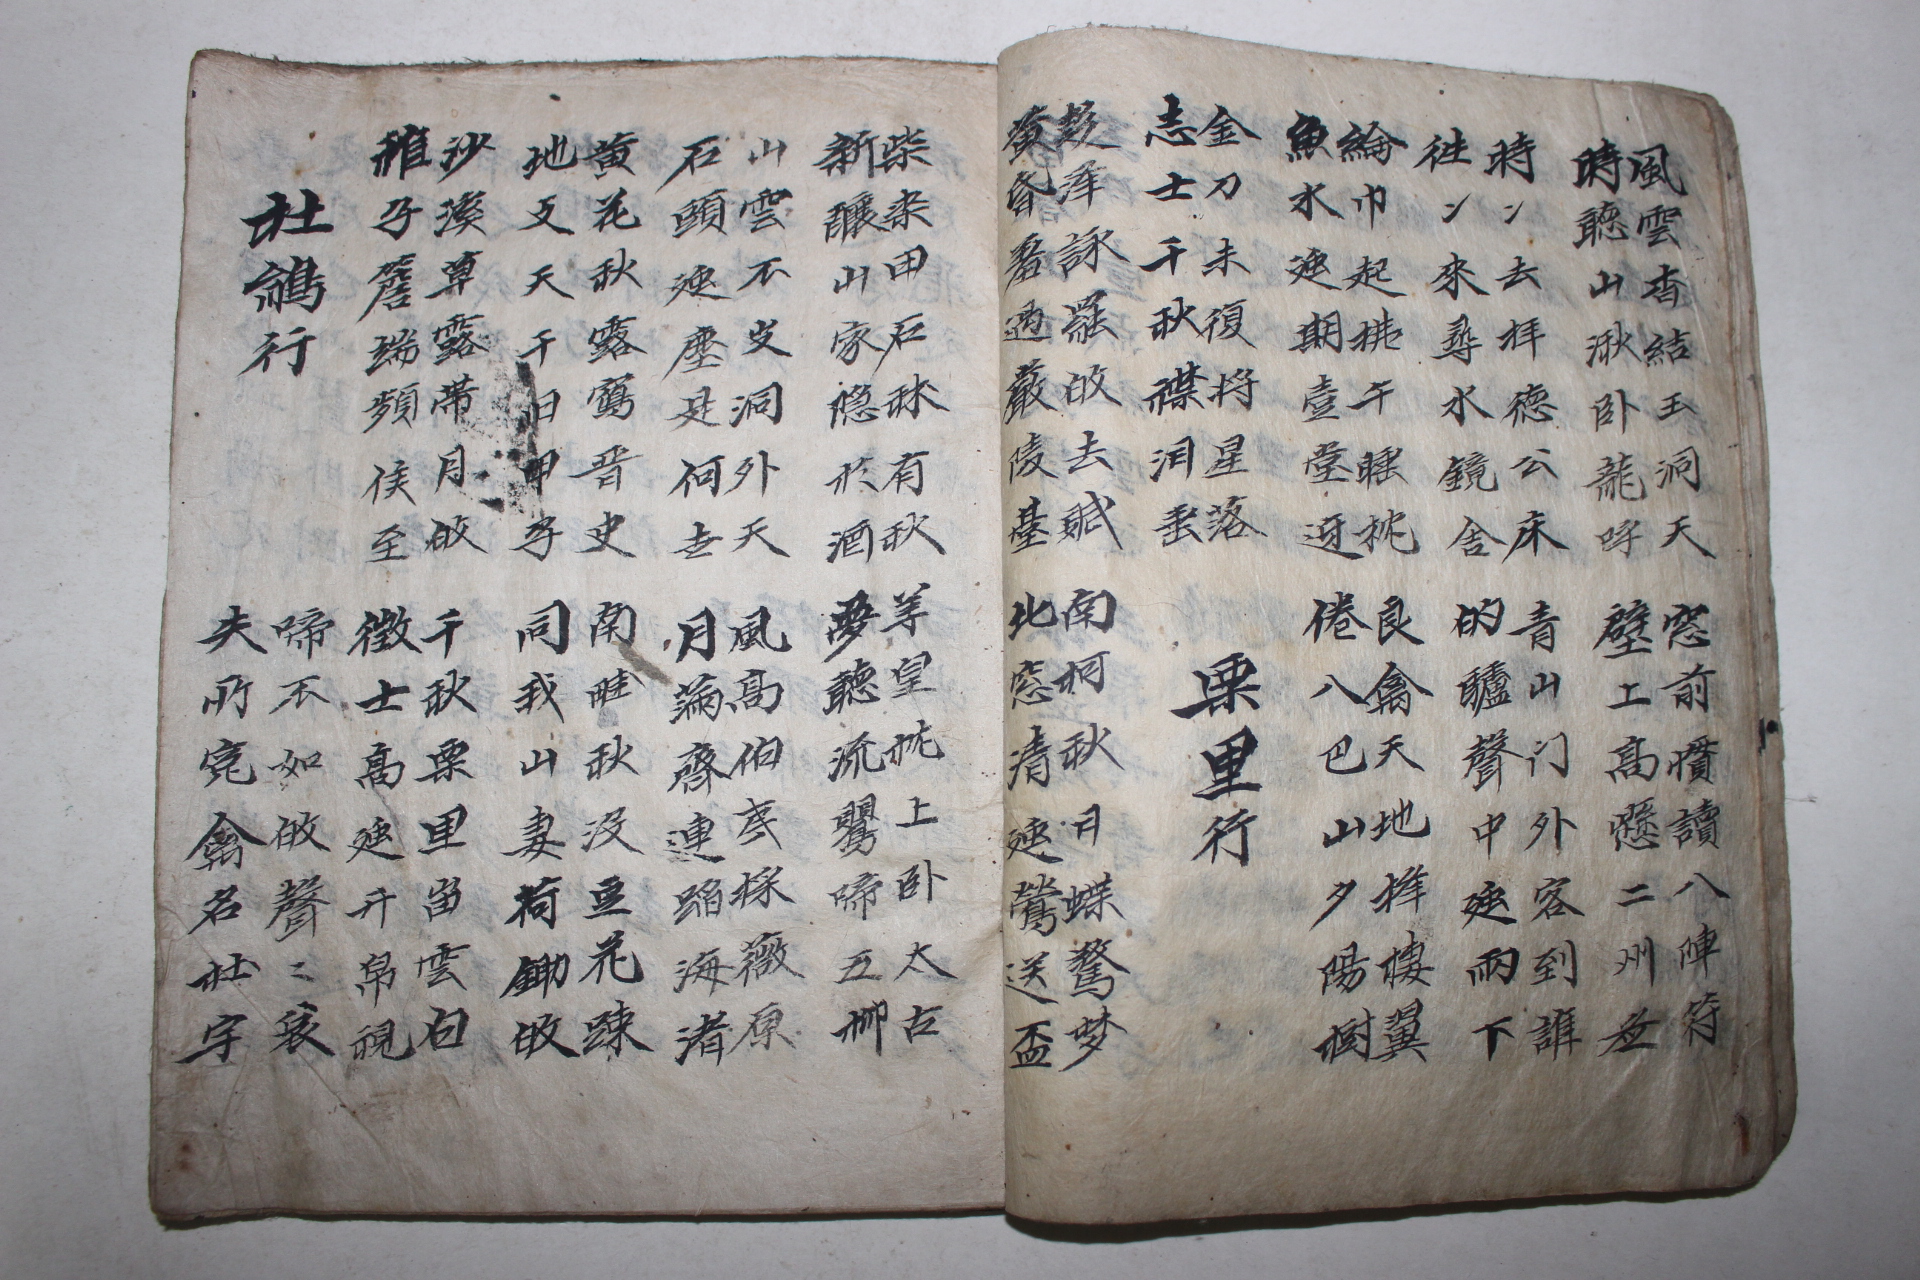 風雲杳結玉洞天
時聽山湫卧龍吟
窓前慣讀八陣符
壁上高懸二州
時〻去拜德公床
往〻來尋水鏡舍
青山门外客到誰
的驢聲中延雨下
綸巾起推午睡枕
魚水延期臺迓
良禽天地擇棲翼
倦八巴山夕陽樹
金刀未復將星落
志士千秋襟泪垂
栗里行
詠罷皈去賦
黃昏過嚴陵基
南柯秋月蝶驚梦
北窓清延鶯送盃
柴桒田石秫有秋
新釀山家隐於酒
羊皇枕上卧太古
夢聽流鸎啼五柳
山雲不洞外天
石頭延塵是何世
風高伯夷採薇原
月滿齊連蹈海渚
黄花秋露寫晋史
地又天干旧甲子
南畦秋没豆花踈
同我山妻荷鋤皈
沙溪草露帶月皈
稚子簷端頻俟至
千秋栗里留雲白
徵士高延升帛視
杜鵑行
啼不如皈聲〻哀
夫所寃禽名杜宇